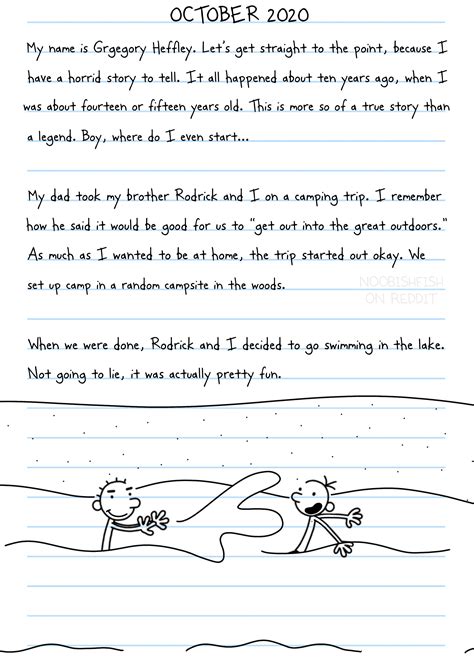 OCTOBER 2020
My name is Grgegory Heffley. Let's get straight to the point, because I
have a horrid story to tell. It all happened about ten years ago, when I
was about fourteen or fifteen years old. This is more so of a true story than
a legend. Boy, where do I even start...
My dad took my brother Rodrick and I on a camping trip. I remember
how he said it would be good for us to "get out into the great outdoors."
As much as I wanted to be at home, the trip started out okay. We
set up camp in a random campsite in the woods.
NOOBISHFISH
ON REDDIT
When we were done, Rodrick and I decided to go swimming in the lake.
Not going to lie, it was actually pretty fun.